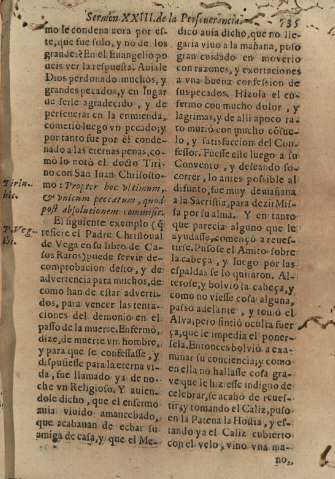 Sermon XXIII. de la Perseuerancia. 735
mo le condena aora por es-
te, que fue solo, y no de los
grandes? En el Euangelio po
deis ver la respuesta. Auiale
Dios perdonado muchos, y
grandes pecados, y en lugar
de serle agradecido, y de
perseuerar en la enmienda,
cometiò luego vn pecado; y
por tanto fue por èl conde-
nado a las eternas penas, co-
mo lo notò el docto Tiri-
no con San Iuan Chrisosto-
mo: Propter hoc vltimum,
& vnicum peccatum, quod
post absolutionem commisit.
El siguiente exemplo (q̃
refiere el Padre Christoual
de Vega en su libro de Ca-
sos Raros) puede servir de
comprobacion desto, y de
advertencia para muchos, de
como han de estar adverti-
dos, para vencer las tenta-
ciones del demonio en el
passo de la muerte. Enfermó,
dize, de muerte vn hombre,
y para que se confessasse, y
dispusiesse para la eterna vi-
da, fue llamado ya de no-
che vn Religioso. Y auien-
dole dicho, que el enfermo
auia viuido amancebado,
que acabauan de echar su
amiga de casa, y que el Me-
Tirin.
hic.
P. Veg.
dico auia dicho, que no lle-
garia viuo a la mañana, puso
gran cuidado en moverlo
con razones, y exortaciones
a vna buena confession de
sus pecados. Hizola el en-
fermo con mucho dolor, y
lagrimas, y de alli apoco ra-
to muriò con mucho cõsue-
lo, y satisfaccion del Con-
fessor. Fuesse este luego a su
Convento, y deseando so-
correr, lo antes possible al
difunto, fue muy de mañana
a la Sacristia, para dezir Mis-
sa por su alma. Y en tanto
que parecia alguno que le
ayudasse, començò a reues-
tirse. Pusose el Amito sobre
la cabeça, y luego por las
espaldas se lo quitaron. Al-
terose, y bolviò la cabeça, y
como no viesse cosa alguna,
passò adelante, y tomò el
Alva, pero sintiò oculta fuer
ça, que le impedia el poner-
sela. Entonces bolviò a exa-
minar su conciencia; y como
en ella no hallasse cosa gra-
ve que le hiziesse indigno de
celebrar, se acabó de reues-
tir; y tomando el Caliz, puso
en la Patena la Hostia, y es-
tando ya el Caliz cubierto
con el velo, vino vna ma-
no,